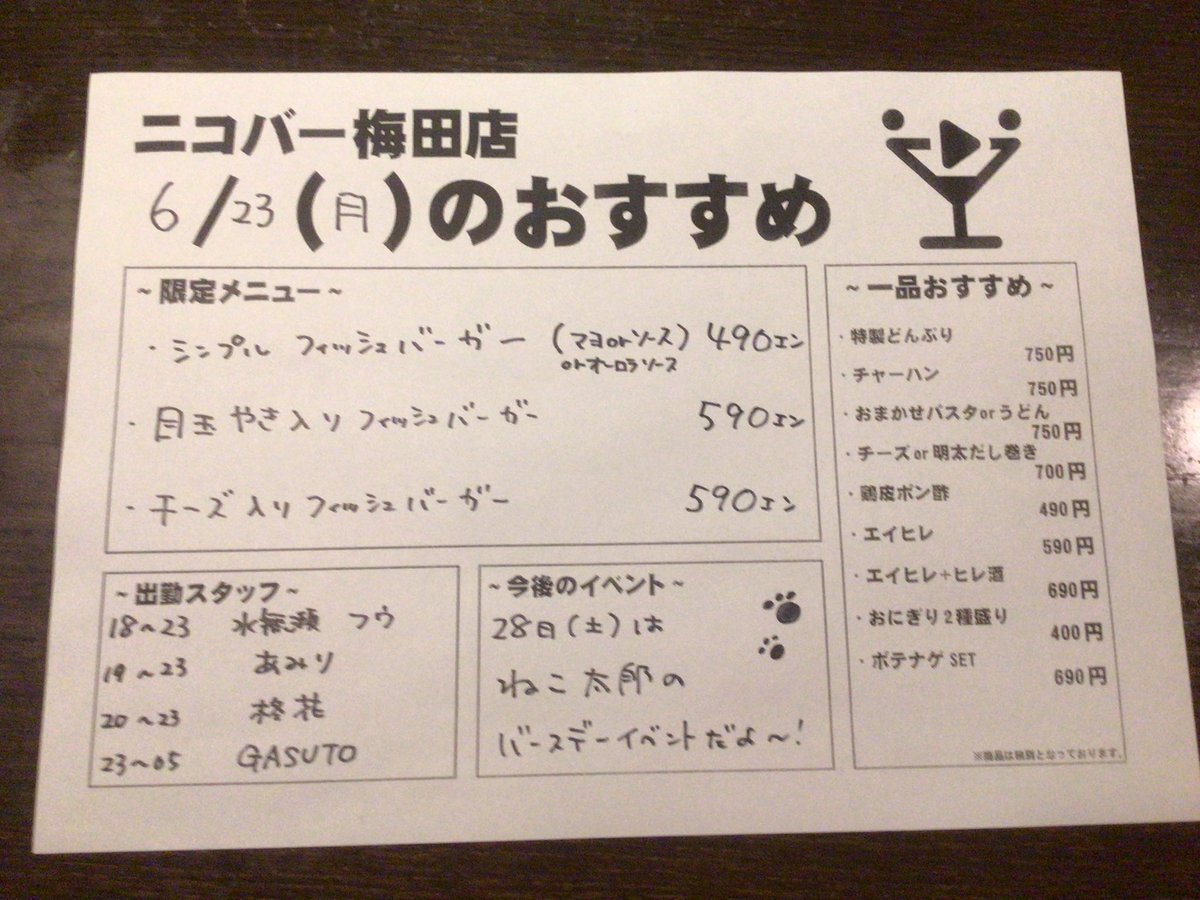 ニコバー梅田店
6/23(月)のおすすめ
~限定メニュー~
・シンプル フィッシュバーガー (マヨorソース) 490エン
orオーロラソース
・目玉やき入りフィッシュバーガー 590エン
・チーズ入りフィッシュバーガー 590エン
~出勤スタッフ~
18~23 水無瀬 フウ
19~23 あみり
20~23 柊花
23~05 GASUTO
~今後のイベント~
28日(土)は
ねこ太郎の
バースデーイベントだよ~!
~一品おすすめ~
・特製どんぶり
750円
・チャーハン
750円
・おまかせパスタorうどん
750円
・チーズor明太だし巻き
700円
・鶏皮ポン酢
490円
・エイヒレ
590円
・エイヒレ+ヒレ酒
690円
・おにぎり2種盛り
400円
・ポテナゲSET
690円
※商品は税別となっております。